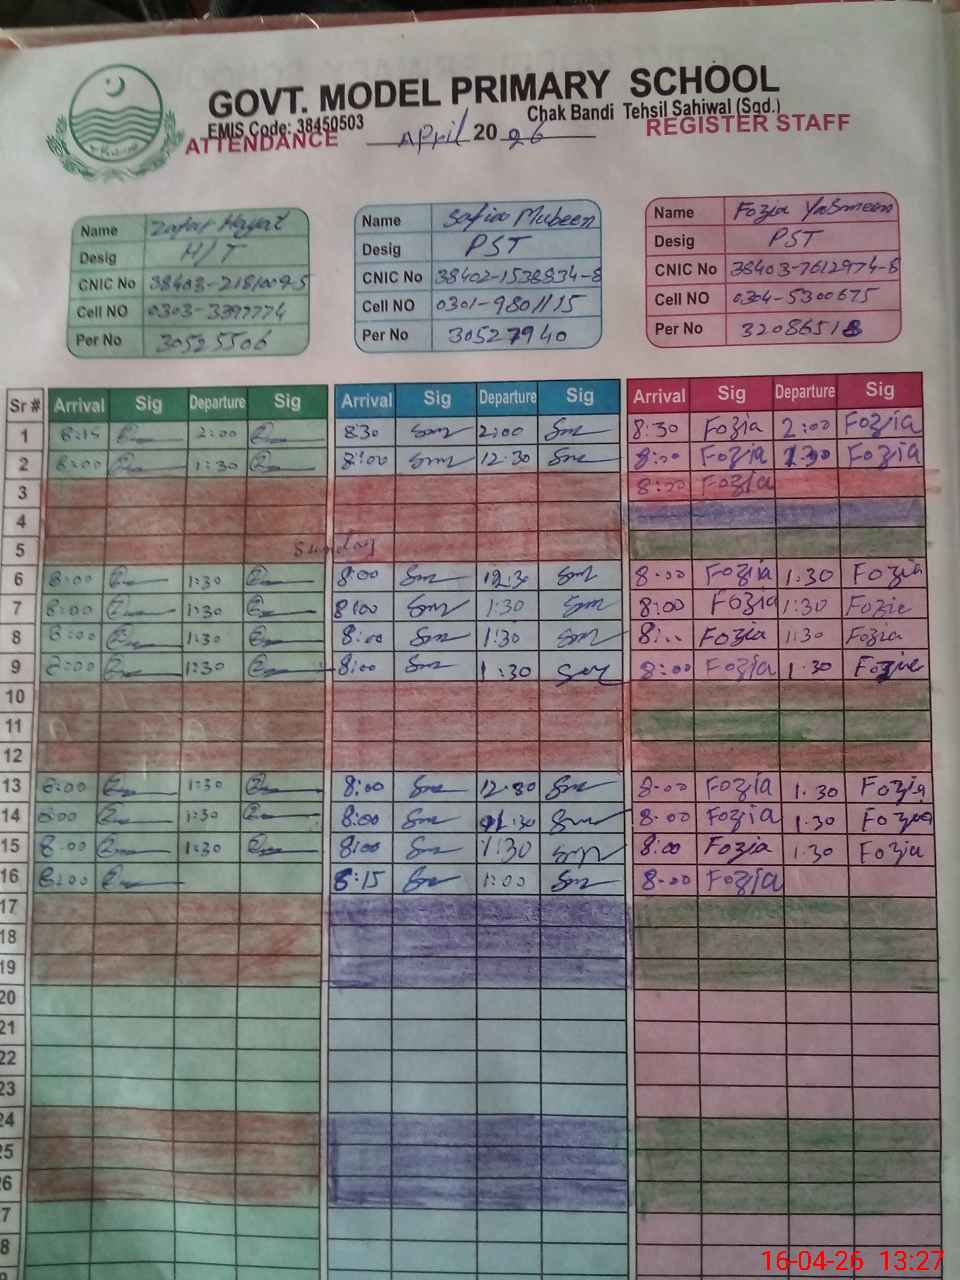 GOVT. MODEL PRIMARY SCHOOL
Chak Bandi Tehsil Sahiwal (Sgd.)
EMIS Code: 38450503
ATTENDANCE April 2026 REGISTER STAFF
Name Zafar Hayat Name Safia Mubeen Name Fozia Yasmeen
Desig H/T Desig PST Desig PST
CNIC No CNIC No 38402-1538834-8 CNIC No 38403-7612974-8
Cell NO 0303-3397774 Cell NO 0301-9801115 Cell NO 0304-5300675
Per No 30525506 Per No 30527940 Per No 32086518
Sr # Arrival Sig Departure Sig Arrival Sig Departure Sig Arrival Sig Departure Sig
1 8:15 2:00 830 2:00 8:30 Fozia 2:00 Fozia
2 8:00 1:30 8:00 12.30 8:00 Fozia 1:30 Fozia
3 8:00 Fozia
4
5 Sunday
6 8:00 1:30 8:00 12.30 8:00 Fozia 1.30 Fozia
7 8:00 1:30 8:00 1:30 8:00 Fozia 1:30 Fozia
8 8:00 1:30 8:00 1:30 8:.. Fozia 1:30 Fozia
9 8:00 1:30 8:00 1:30 8:00 Fozia 1.30 Fozia
10
11
12
13 8:00 1:30 8:00 12.30 8:00 Fozia 1.30 Fozia
14 8:00 1:30 8:00 8:00 Fozia 1.30 Fozia
15 8:00 1:30 8:00 1:30 8:00 Fozia 1.30 Fozia
16 8:00 8:15 1:00 8:00 Fozia
17
18
19
20
21
22
23
24
25
26
7
8
16-04-26 13:27